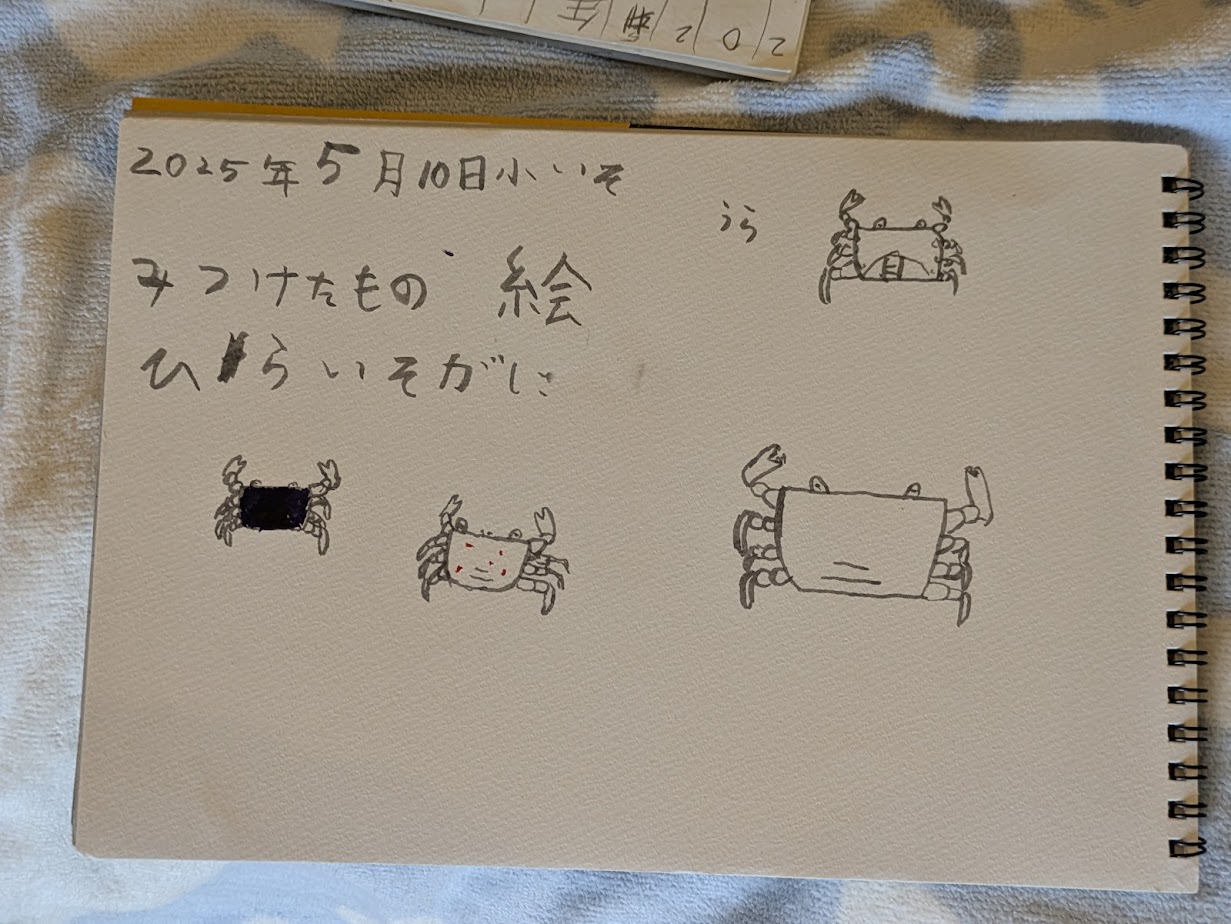 2025年5月10日小いそ
みつけたもの 絵
ひらいそがに
うら
202